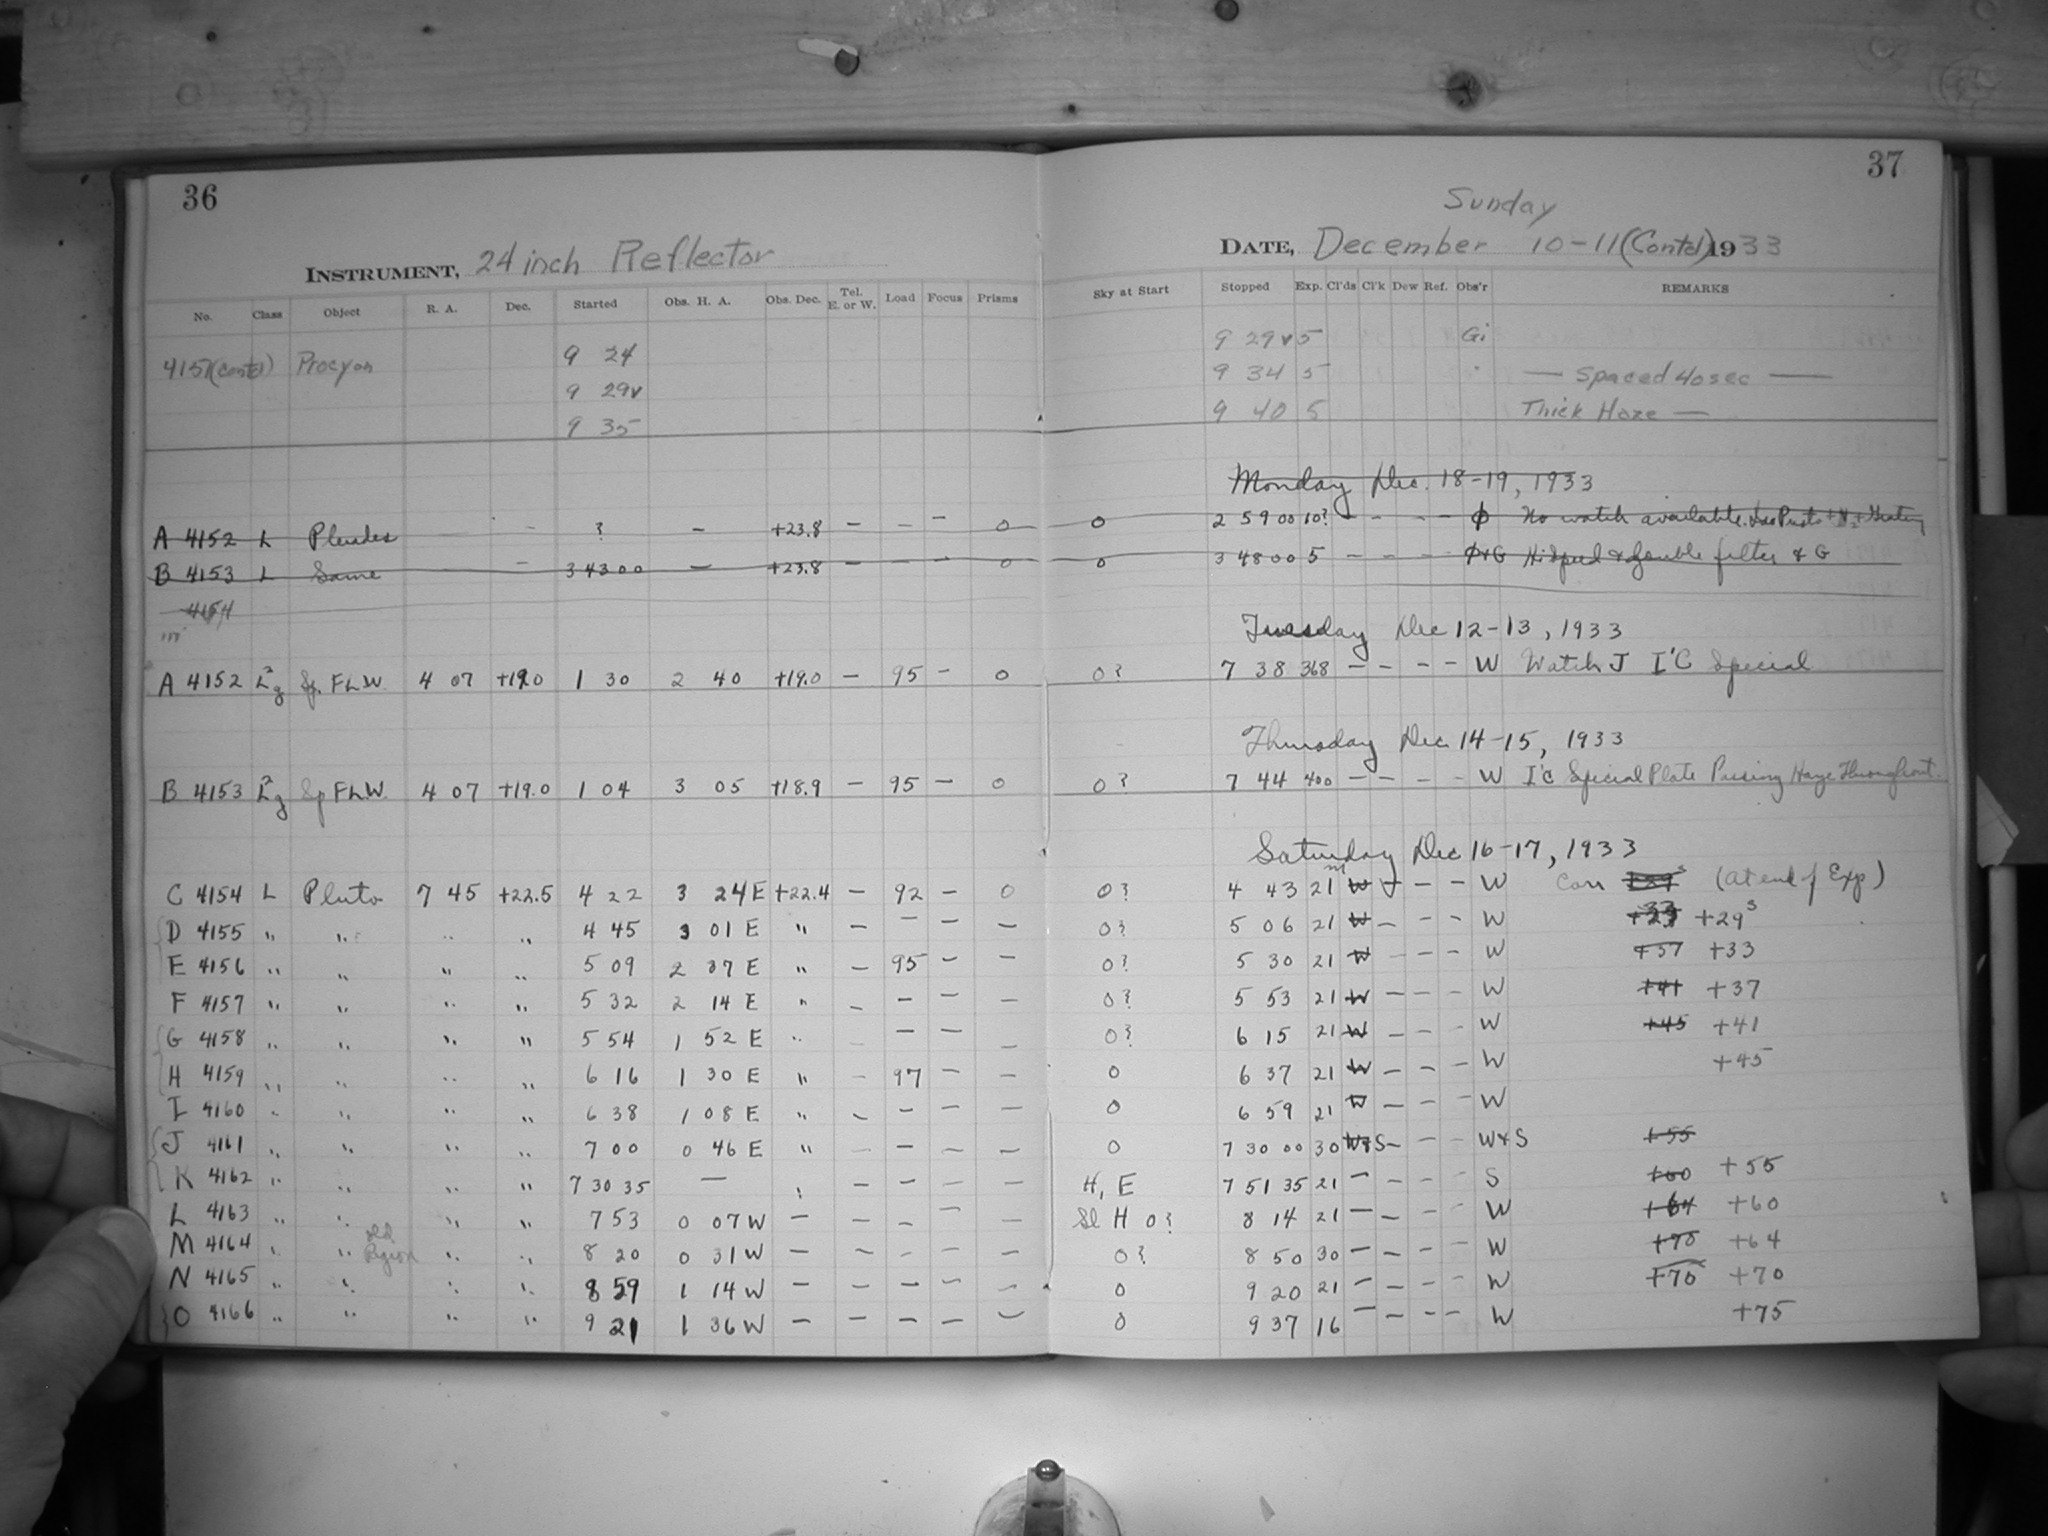 36
INSTRUMENT, 24 inch Reflector
No. Class Object R. A. Dec. Started Obs. H. A. Obs. Dec. Tel. E. or W. Load Focus Prisms
4151(contd) Procyon 9 24
9 29v
9 35
A 4152 L Pleiades — - ? - +23.8 — - — 0
B 4153 L Same - 3 43 00 — +23.8 - - - 0
4154
A 4152 Sp. F.L.W. 4 07 +19.0 1 30 2 40 +19.0 — 95 — 0
B 4153 Sp F.L.W. 4 07 +19.0 1 04 3 05 +18.9 — 95 — 0
C 4154 L Pluto 7 45 +22.5 4 22 3 24 E +22.4 — 92 — 0
D 4155 " " " " 4 45 3 01 E " — — — —
E 4156 " " " " 5 09 2 37 E " — 95 — —
F 4157 " " " " 5 32 2 14 E " — — — —
G 4158 " " " " 5 54 1 52 E " — — — —
H 4159 " " " " 6 16 1 30 E " — 97 — —
I 4160 " " " " 6 38 1 08 E " — — — —
J 4161 " " " " 7 00 0 46 E " — — — —
K 4162 " " " " 7 30 35 — " — — — —
L 4163 " " " " 7 53 0 07 W — — — — —
old
M 4164 " " Region " " 8 20 0 31 W — — — — —
N 4165 " " " " 8 59 1 14 W — — — — —
O 4166 " " " " 9 21 1 36 W — — — — —
37
Sunday
DATE, December 10-11 (Contd) 1933
Sky at Start Stopped Exp. Cl'ds Cl'k Dew Ref. Obs'r REMARKS
9 29v 5 Gi
9 34 5 " — Spaced 40 sec —
9 40 5 Thick Haze —
Monday Dec. 18-19, 1933
0 2 59 00 10? - - - - ϕ No watch available.
0 3 48 00 5 — - - - ϕ+G Hispeed & double filter & G
Tuesday Dec 12-13, 1933
0? 7 38 368 — — — — W Watch J I'C Special
Thursday Dec. 14-15, 1933
0? 7 44 400 — — — — W I'C Special Plate Passing Haze Throughout.
Saturday Dec 16-17, 1933
0? 4 43 21m W — — — W Corr (at end of Exp)
0? 5 06 21 W — — — W +29s
0? 5 30 21 W — — — W +37 +33
0? 5 53 21 W — — — W +41 +37
0? 6 15 21 W — — — W +45 +41
0 6 37 21 W — — — W +45
0 6 59 21 W — — — W
0 7 30 00 30 W+S — — — W+S +55
H, E 7 51 35 21 — — — — S +60 +55
Sl H 0? 8 14 21 — — — — W +64 +60
0? 8 50 30 — — — — W +70 +64
0 9 20 21 — — — — W +70 +70
0 9 37 16 — — — — W +75